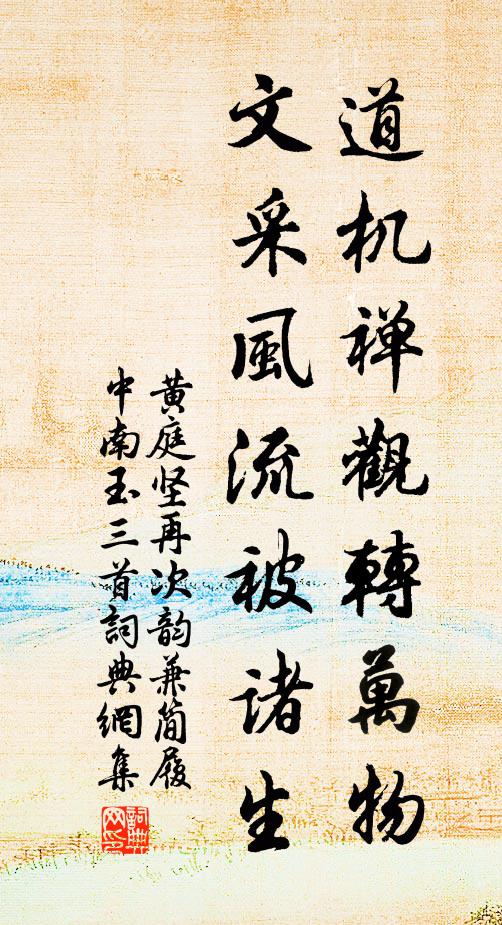 道机禅觀轉萬物
文采風流被诸生
黄庭坚再次韵兼简履
中南玉三首詞典網集